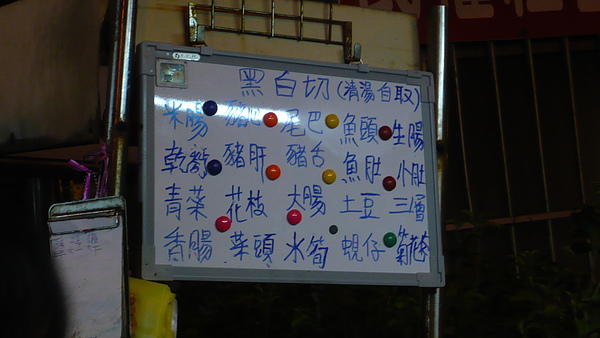 黑白切(清湯自取)
米腸 豬心 尾巴 魚頭 生腸
乾 豬肝 豬舌 魚肚 小肚
青菜 花枝 大腸 土豆 三層
香腸 菜頭 水筍 蜆仔